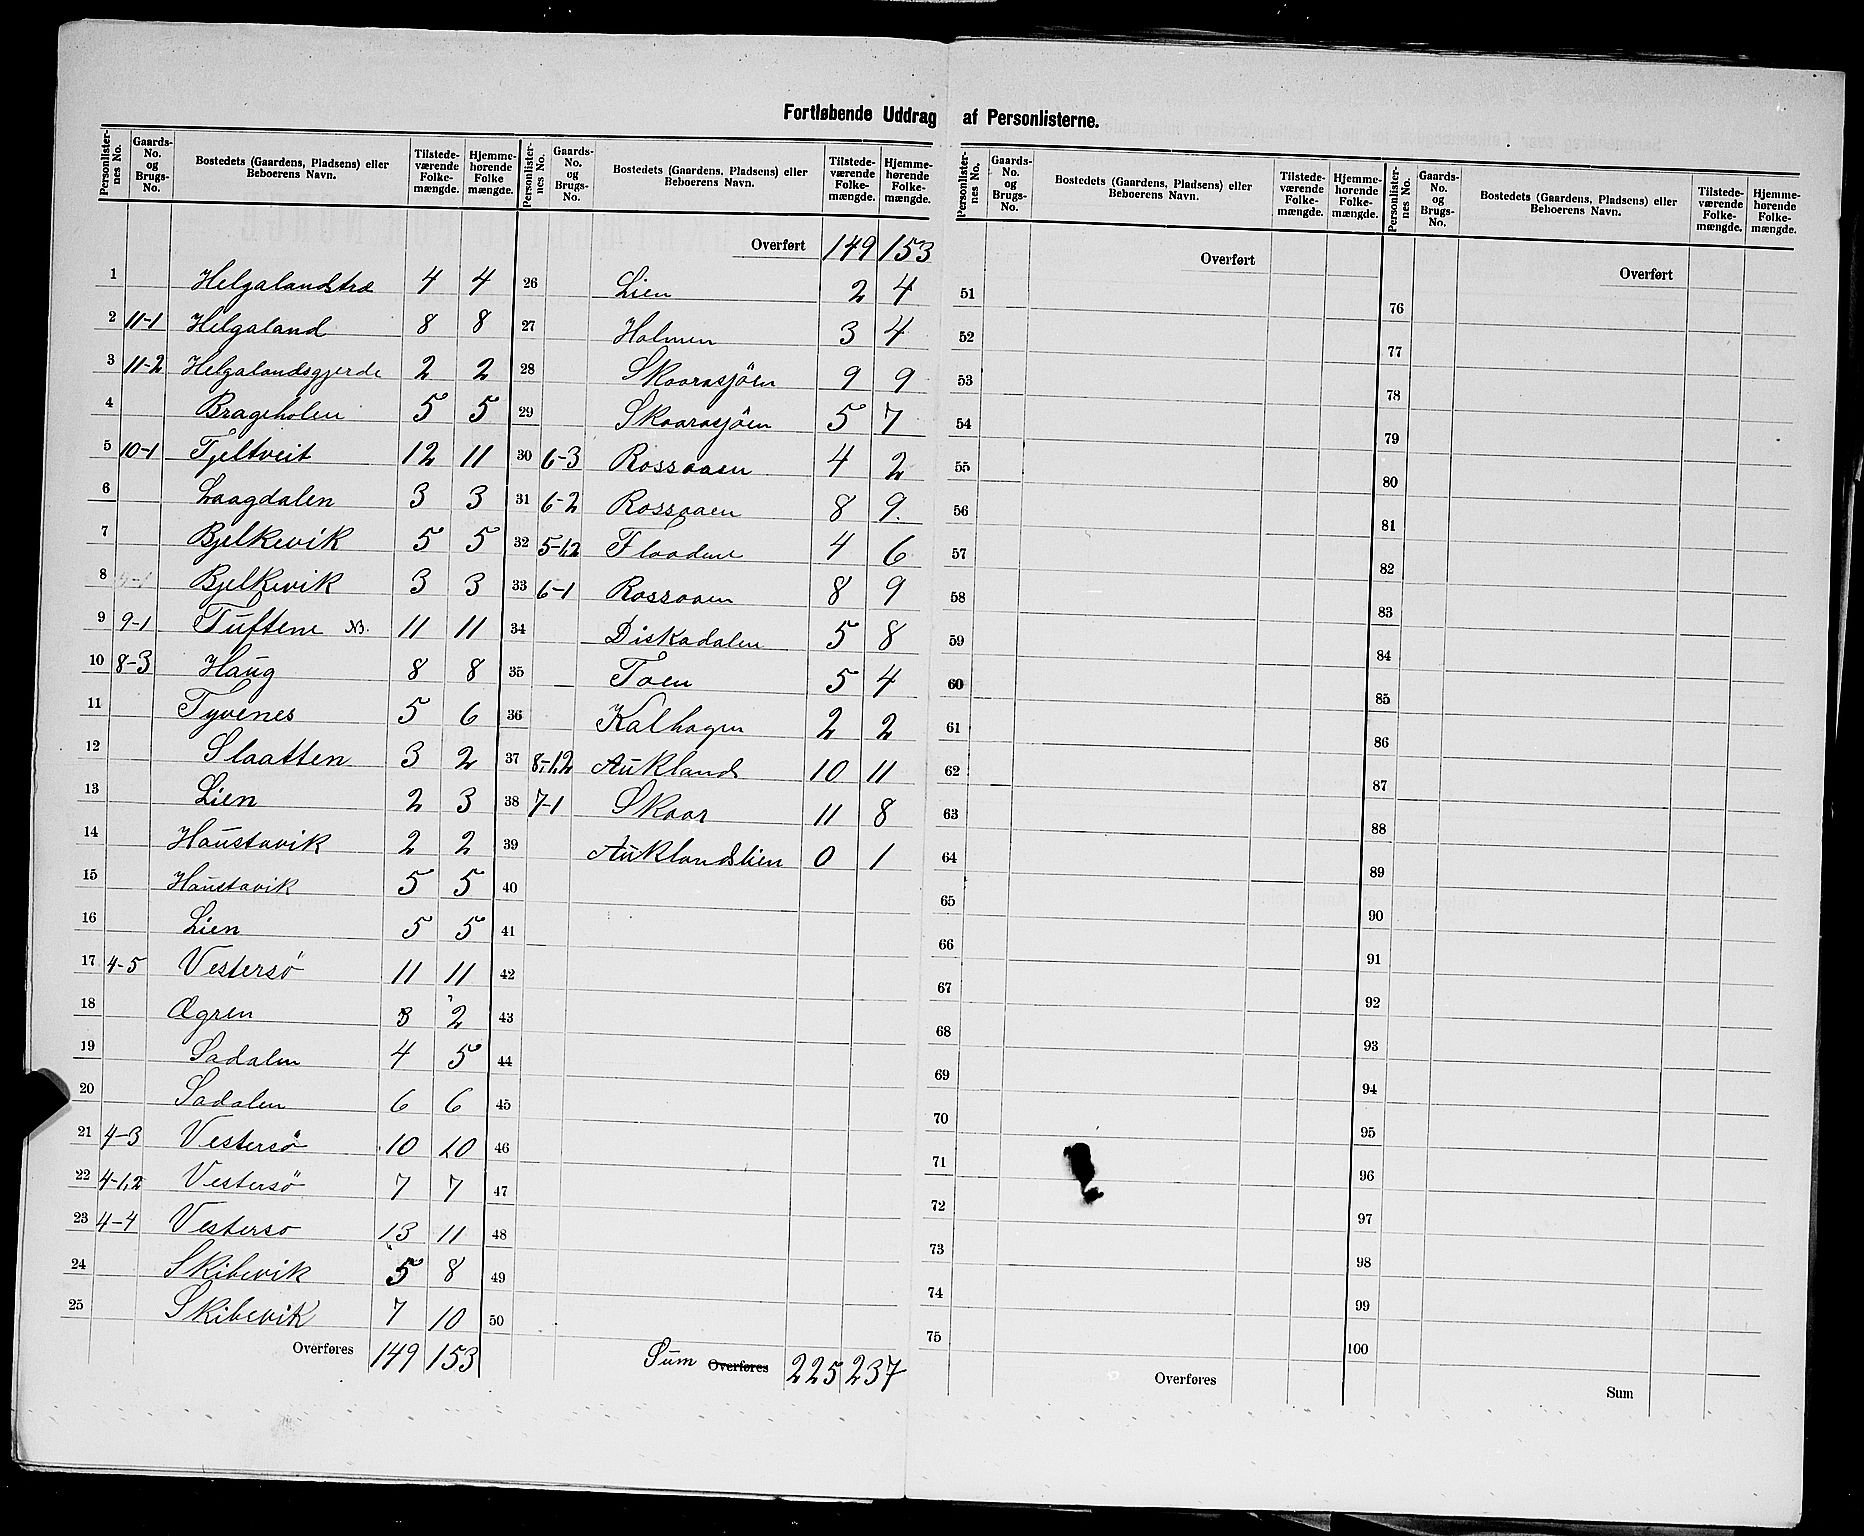 Fortløbende Uddrag af Personlisterne.
Personlisternes No. | Gaards-No. og Brugs-No. | Bostedets (Gaardens, Pladsens) eller Beboerens Navn. | Tilstedeværende Folkemængde. | Hjemmehørende Folkemængde.
1 Helgalandstræ 4 4
2 11-1 Helgaland 8 8
3 11-2 Helgalandsgjerde 2 2
4 Brageholen 5 5
5 10-1 Tjeltveit 12 11
6 Laagdalen 3 3
7 Bjelkevik 5 5
8 Bjelkevik 3 3
9 9-1 Tuftene NB. 11 11
10 8-3 Haug 8 8
11 Tyvenes 5 6
12 Slaatten 3 2
13 Lien 2 3
14 Haustavik 2 2
15 Haustavik 5 5
16 Lien 5 5
17 4-5 Vestersö 11 11
18 Øgren 3 2
19 Sadalen 4 5
20 Sadalen 6 6
21 4-3 Vestersö 10 10
22 4-1,2 Vestersö 7 7
23 4-4 Vesterso 13 11
24 Skibevik 5 8
25 Skibevik 7 10
Overføres 149 153
Personlisternes No. | Gaards-No. og Brugs-No. | Bostedets (Gaardens, Pladsens) eller Beboerens Navn. | Tilstedeværende Folkemængde. | Hjemmehørende Folkemængde.
Overført 149 153
26 Lien 2 4
27 Holmen 3 4
28 Skaarasjöen 9 9
29 Skaarasjöen 5 7
30 6-3 Rossaaen 4 2
31 6-2 Rossaaen 8 9.
32 5-1,2 Flaadene 4 6
33 6-1 Rossaaen 8 9
34 Diskadalen 5 8
35 Toen 5 4
36 Kalhagen 2 2
37 8-1,2 Aukland 10 11
38 7-1 Skaar 11 8
39 Auklandslien 0 1
40
41
42
43
44
45
46
47
48
49
50
Sum Overføres 225 237
Personlisternes No. | Gaards-No. og Brugs-No. | Bostedets (Gaardens, Pladsens) eller Beboerens Navn. | Tilstedeværende Folkemængde. | Hjemmehørende Folkemængde.
Overført
51
52
53
54
55
56
57
58
59
60
61
62
63
64
65
66
67
68
69
70
71
72
73
74
75
Overføres
Personlisternes No. | Gaards-No. og Brugs-No. | Bostedets (Gaardens, Pladsens) eller Beboerens Navn. | Tilstedeværende Folkemængde. | Hjemmehørende Folkemængde.
Overført
76
77
78
79
80
81
82
83
84
85
86
87
88
89
90
91
92
93
94
95
96
97
98
99
100
Sum